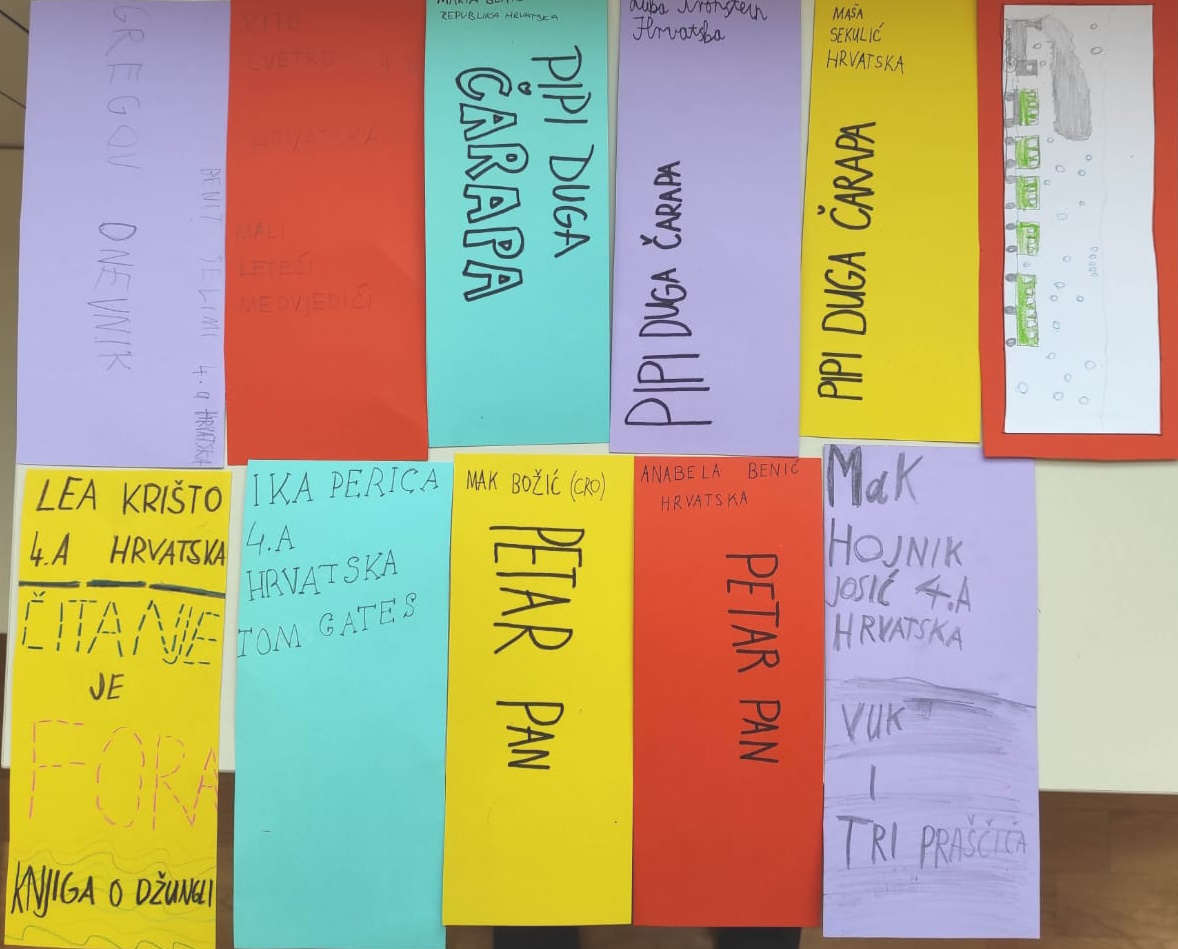 GREGOV DNEVNIK
4.a HRVATSKA
VITO
CVETKO
HRVATSKA
MALI
LETEĆI
MEDVJEDIĆI
REPUBLIKA HRVATSKA
PIPI DUGA
ČARAPA
Hrvatska
PIPI DUGA ČARAPA
MAŠA
SEKULIĆ
HRVATSKA
PIPI DUGA ČARAPA
LEA KRIŠTO
4.A HRVATSKA
ČITANJE
JE
FORA
KNJIGA O DŽUNGLI
IKA PERICA
4.A
HRVATSKA
TOM GATES
MAK BOŽIĆ (CRO)
PETAR PAN
ANABELA BENIĆ
HRVATSKA
PETAR PAN
MaK
HOJNIK
JOSIĆ 4.A
HRVATSKA
VUK
I
TRI PRAŠČIĆA